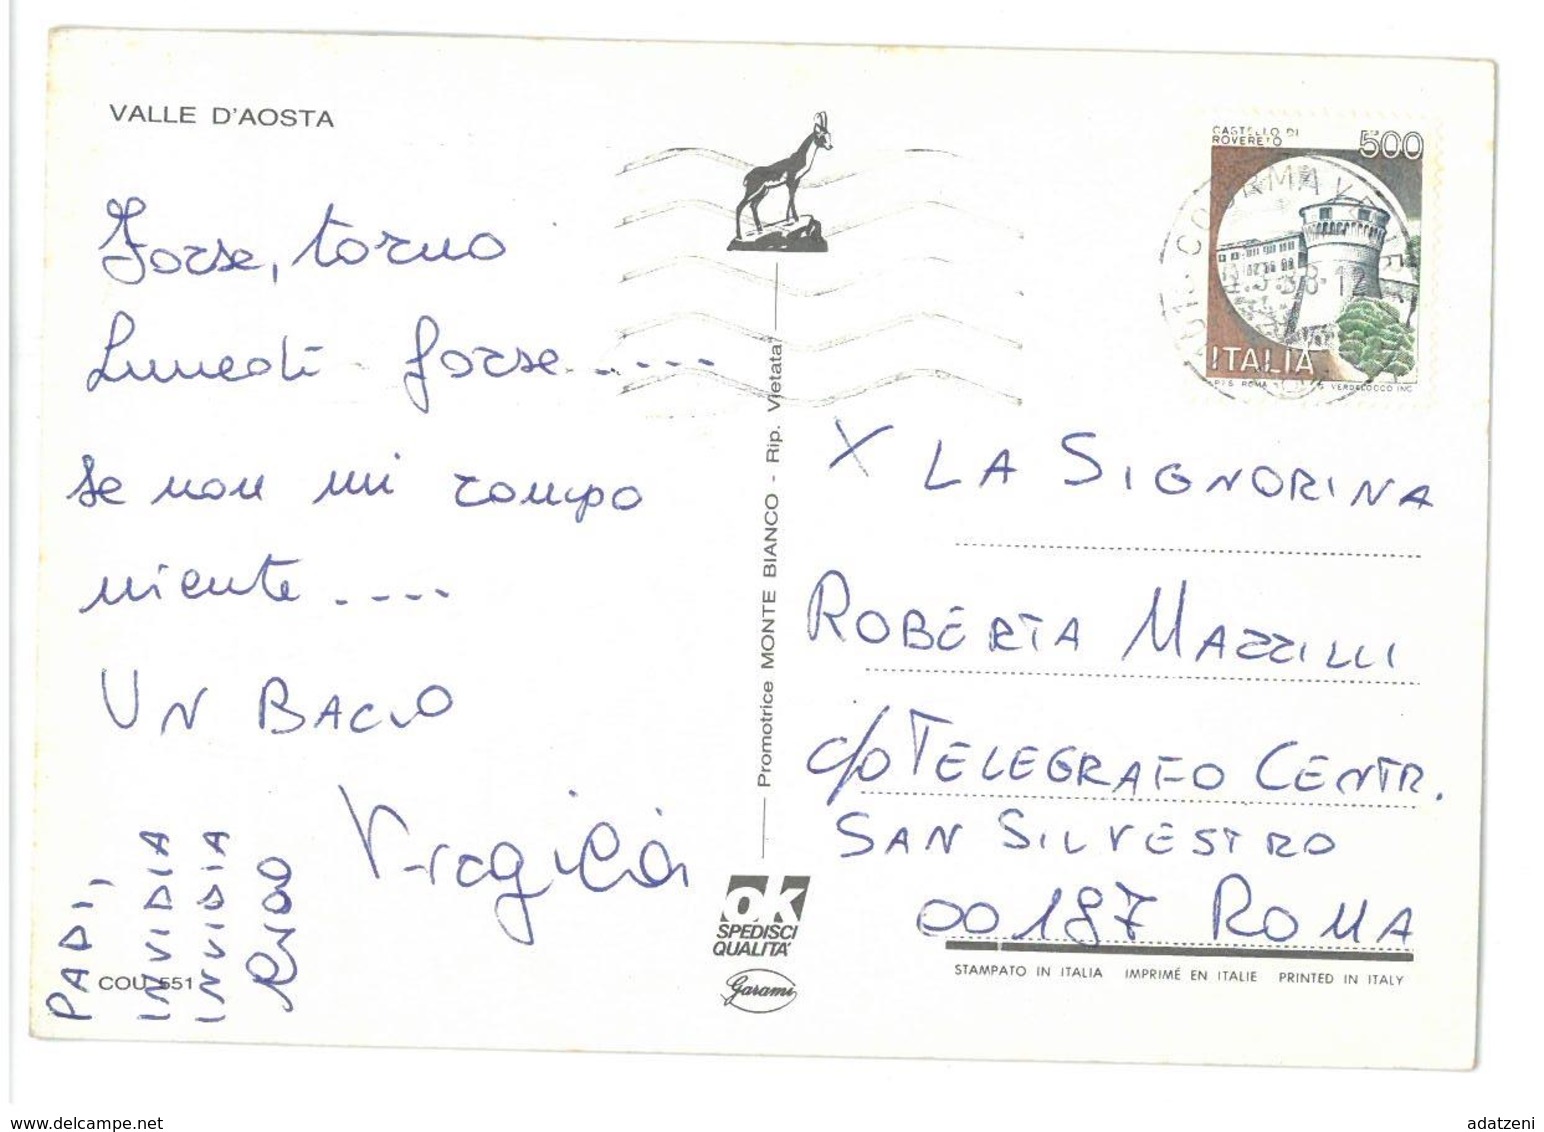 VALLE D'AOSTA
Forse, torno
Lunedì - forse.....
se non mi rompo
niente.....
UN BACIO
Virgilia
PADI,
INVIDIA
INVIDIA
COU 551
Promotrice MONTE BIANCO - Rip. Vietata
OK
SPEDISCI
QUALITA'
Garami
CASTELLO DI
ROVERETO
500
ITALIA
COURMAYEUR
X LA SIGNORINA
ROBERTA MAZZILLI
c/o TELEGRAFO CENTR.
SAN SILVESTRO
00187 ROMA
STAMPATO IN ITALIA IMPRIMÉ EN ITALIE PRINTED IN ITALY
www.delcampe.net
adatzeni